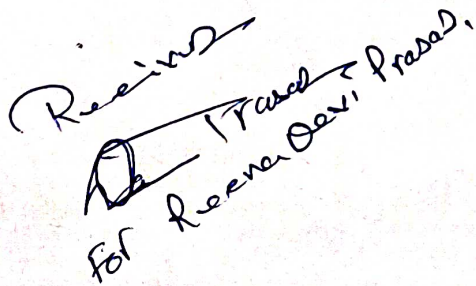 Received
Prasad
For Reena Devi Prasad.